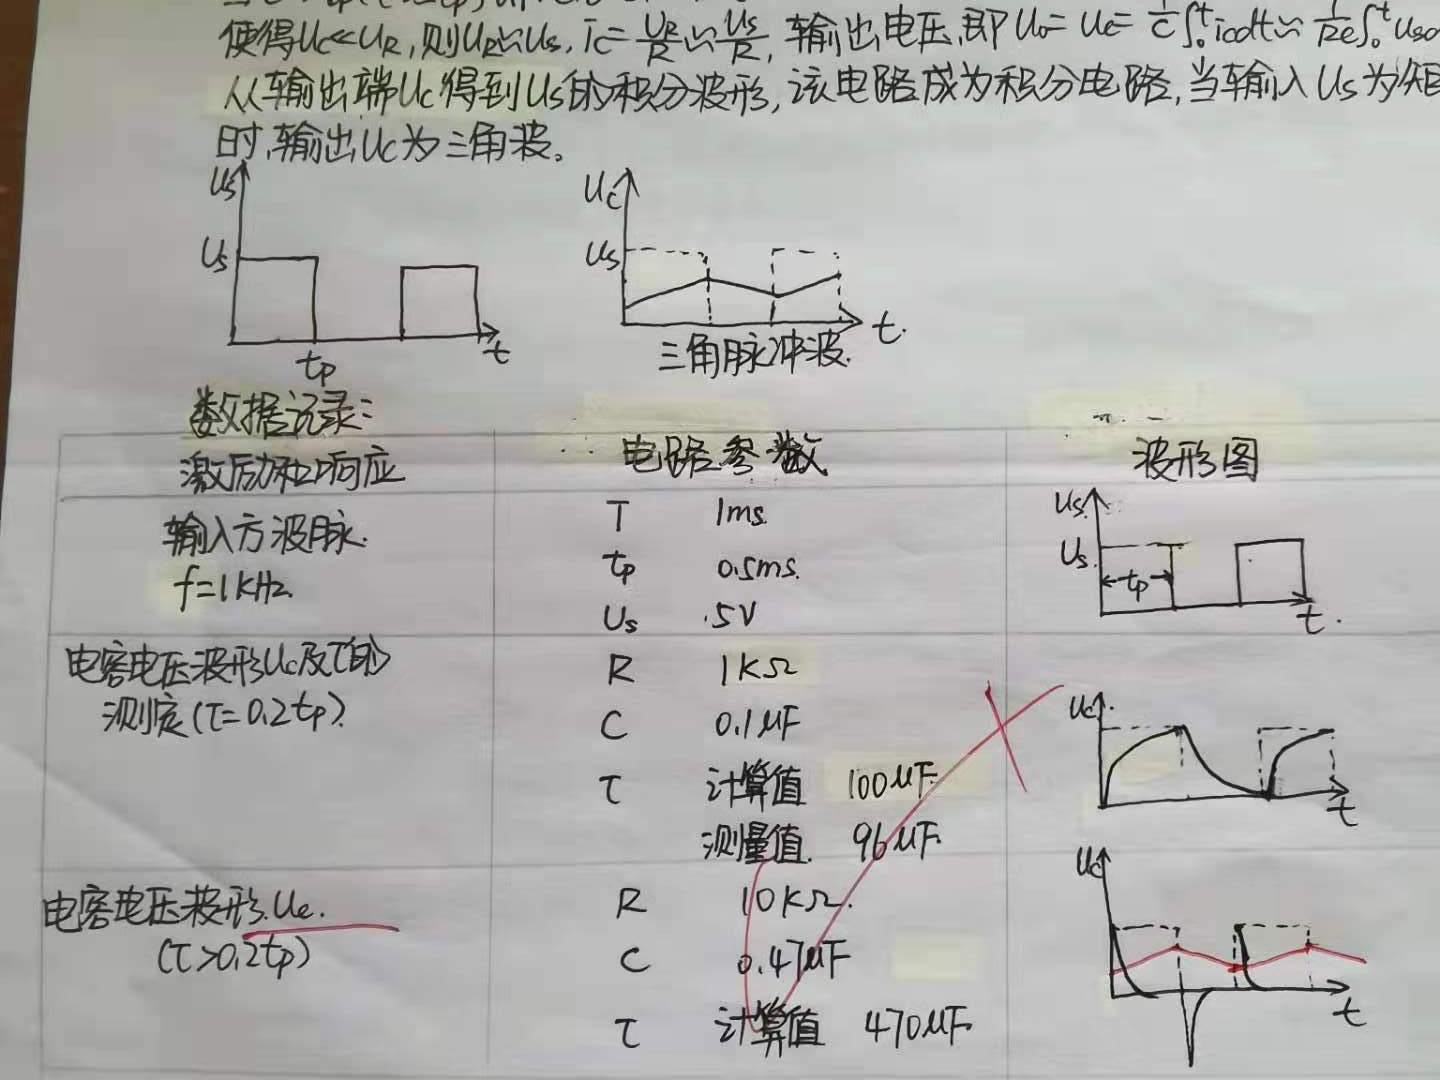 使得Uc≪UR,则UR≈Us, ic=UR/R≈Us/R, 输出电压,即Uo=Uc=1/C∫₀ᵗicdt≈1/RC∫₀ᵗUsd
从输出端Uc得到Us的积分波形,该电路成为积分电路,当输入Us为矩
时,输出Uc为三角波。
Us
Us
tp
t
Uc
Us
t.
三角脉冲波.
数据记录:
激励和响应 电路参数 波形图
输入方波脉.
f=1KHz.
T 1ms.
tp 0.5ms.
Us .5V
Us
Us.
tp
t.
电容电压波形Uc及τ的
测定(τ=0.2tp).
R 1KΩ
C 0.1μF
τ 计算值 100μF.
测量值. 96μF.
Uc.
t
电容电压波形.Uc.
(τ>0.2tp)
R 10KΩ.
C 0.47μF
τ 计算值 470μF.
Uc
t